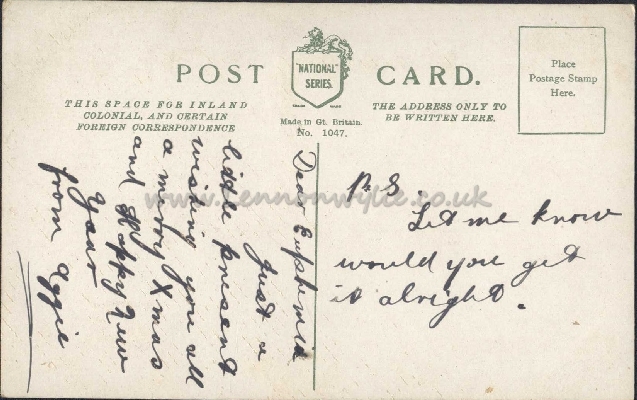 POST CARD.
"NATIONAL"
SERIES.
TRADE MARK
Made in Gt. Britain.
No. 1047.
THIS SPACE FOR INLAND
COLONIAL, AND CERTAIN
FOREIGN CORRESPONDENCE
THE ADDRESS ONLY TO
BE WRITTEN HERE.
Place
Postage Stamp
Here.
Dear Euphemia
Just a
little present
wishing you all
a merry Xmas
and Happy New
Year
from Aggie
P.S.
Let me know
would you get
it alright.
www.lennonwylie.co.uk